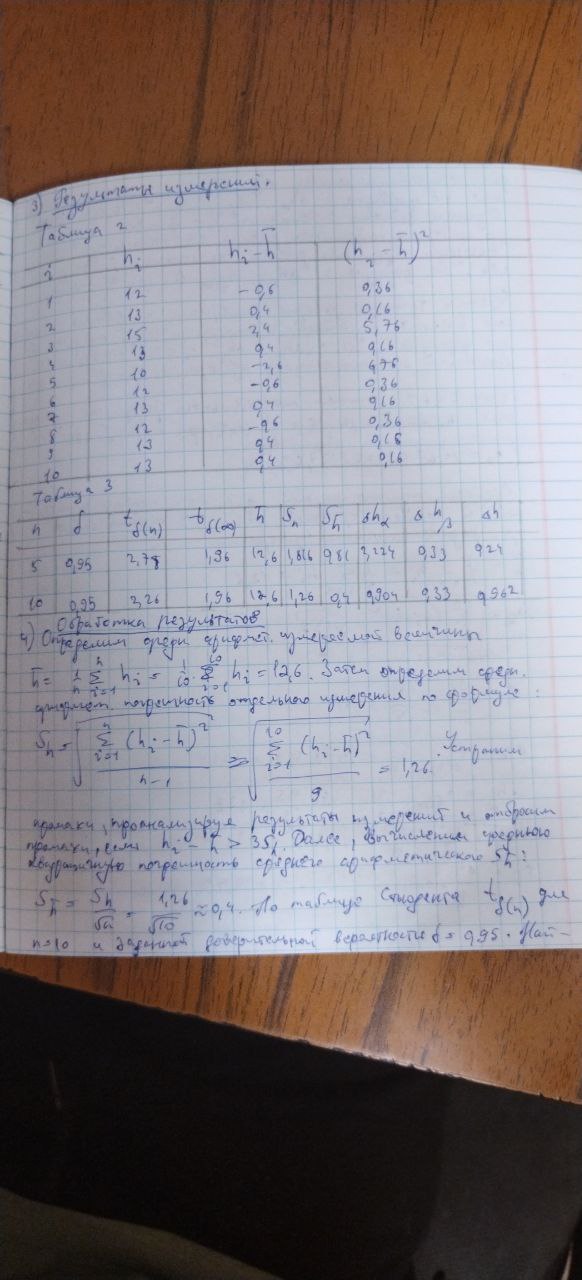 3) Результаты измерений.
Таблица 2
i hi hi - h̄ (hi - h̄)²
1 12 -0,6 0,36
2 13 0,4 0,16
3 15 2,4 5,76
4 13 0,4 0,16
5 10 -2,6 6,76
6 12 -0,6 0,36
7 13 0,4 0,16
8 12 -0,6 0,36
9 13 0,4 0,16
10 13 0,4 0,16
Таблица 3
n δ tδ(n) tδ(∞) h̄ Sn Sh̄ Δhα Δhβ Δh
5 0,95 2,78 1,96 12,6 1,816 0,81 0,33
10 0,95 2,26 1,96 12,6 1,26 0,4 0,904 0,33 0,962
4) Обработка результатов
Определим средн арифмет. измеряемой величины
h̄ = 1/n Σ(i=1..n) hi = 1/10 · Σ(i=1..10) hi = 12,6. Затем определим средн.
погрешность отдельного измерения по формуле:
Sn = √(Σ(i=1..n) (hi - h̄)² / n-1) = √(Σ(i=1..10) (hi - h̄)² / 9) = 1,26. Устраним
промахи, проанализируя результаты измерений и отбросим
промахи, если hi - h̄ > 3Sn. Далее, вычислением
квадратичную погрешность среднего арифметического Sh̄:
Sh̄ = Sn/√n = 1,26/√10 ≈ 0,4. По таблице Стьюдента tδ(n) для
n=10 и заданной доверительной вероятности δ = 0,95. Най-